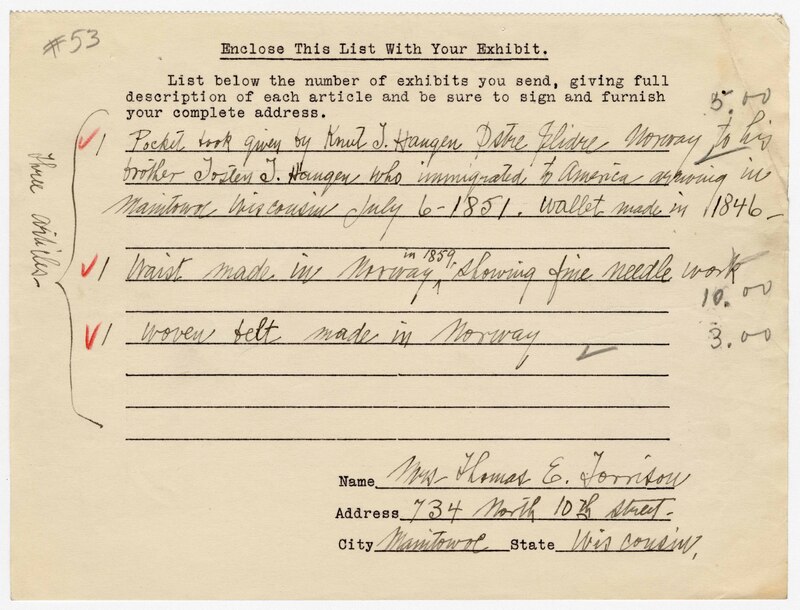 #53
Enclose This List With Your Exhibit.
List below the number of exhibits you send, giving full
description of each article and be sure to sign and furnish
your complete address.
5.00
1 Pocket book given by Knut T. Haugen Østre Slidre Norway to his
brother Tosten T. Haugen who immigrated to America arriving in
Manitowoc Wisconsin July 6-1851. Wallet made in 1846-
Three articles
1 Waist made in Norway in 1859, showing fine needle work
10.00
1 Woven belt made in Norway 3.00
Name Mrs Thomas E. Torrison
Address 734 North 10th Street-
City Manitowoc State Wisconsin,